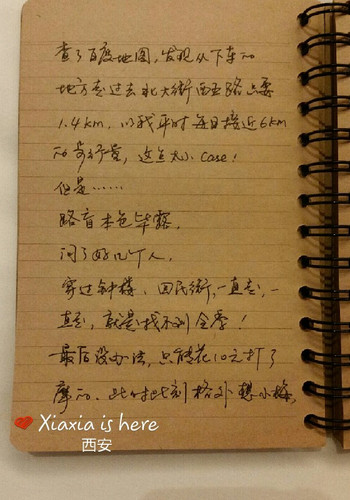 查了百度地图，发现从下车的
地方走过去北大街西五路只要
1.4km，以我平时每日接近6km
的步行量，这点太小case！
但是……
路盲本色毕露，
问了好几个人，
穿过钟楼、回民街，一直走，一
直走，就是找不到全季！
最后没办法，只能花10元打了
摩的，此时此刻格外想小梅，
Xiaxia is here
西安